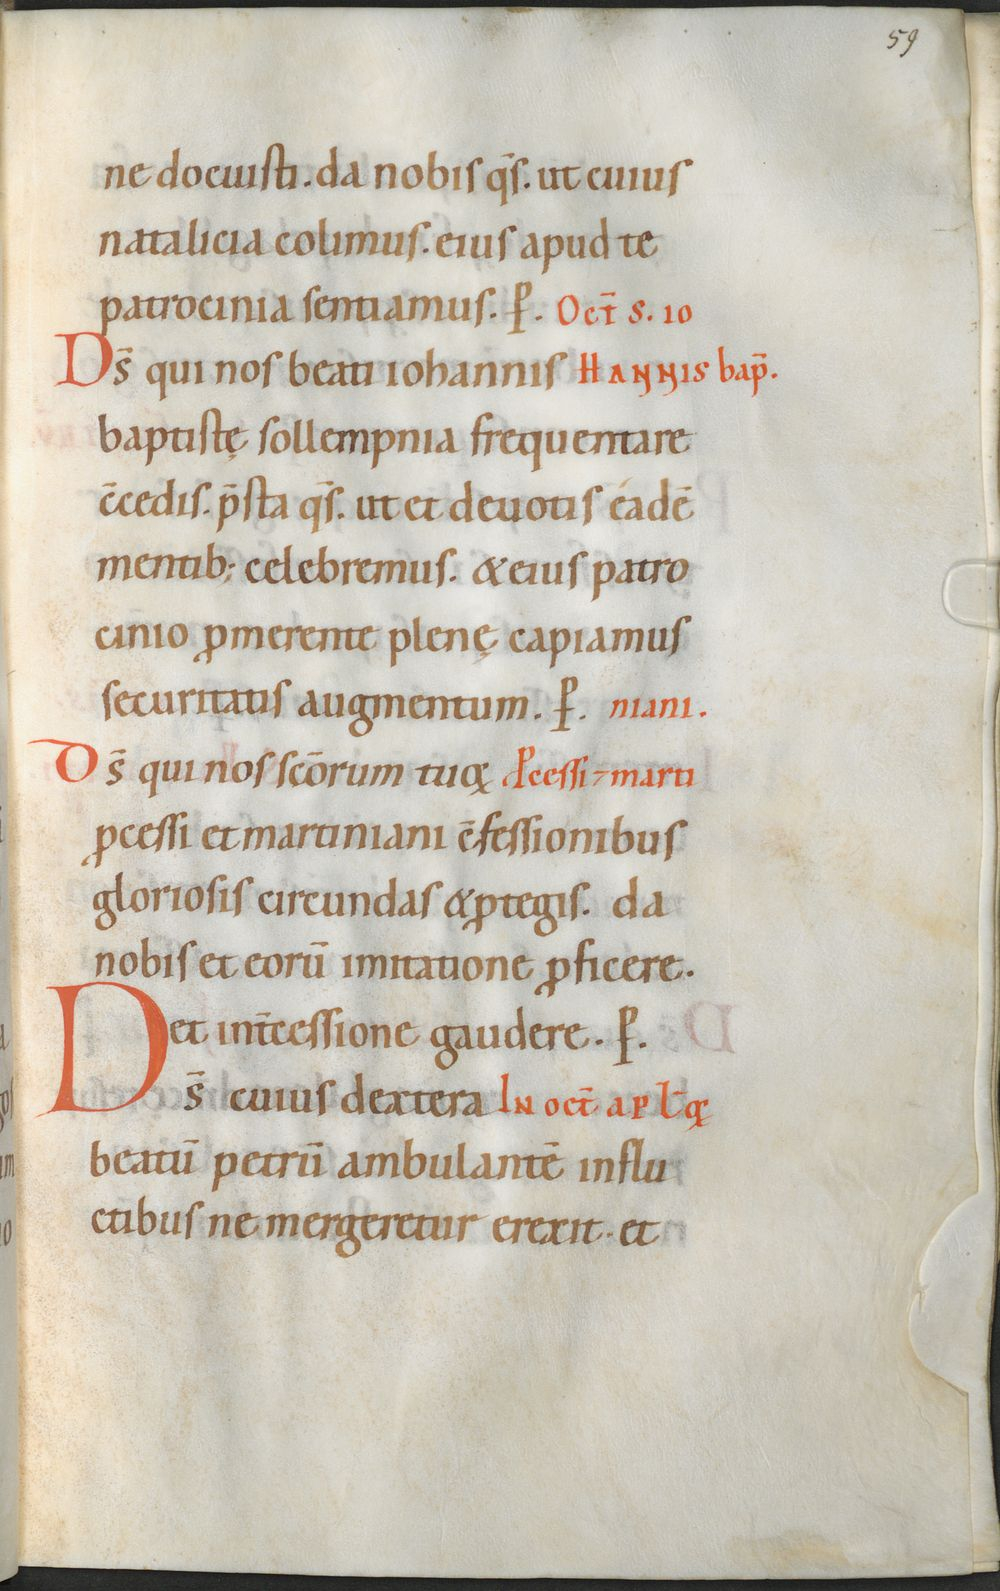 59
ne docuisti. da nobis q̄s. ut cuius
natalicia colimus. eius apud te
patrocinia sentiamus. P̱. Oct̄ S. IO
Ds̄ qui nos beati iohannis HANNIS bap̄.
baptistę sollempnia frequentare
c̄cedis. p̄sta q̄s. ut et deuotis eadē
mentib; celebremus. & eius patro
cinio ꝓmerente plenę capiamus
securitatis augmentum. P̱. niani.
Ds̄ qui nos scōrum tuoꝝ ꝓcessi ⁊ marti
ꝓcessi et martiniani c̄fessionibus
gloriosis circundas & ꝓtegis. da
nobis et eorū imitatione ꝓficere.
et int̄cessione gaudere. P̱.
Ds̄ cuius dextera IN oct̄ aptƚoꝝ
beatū petrū ambulantē influ
ctibus ne mergeretur erexit. et